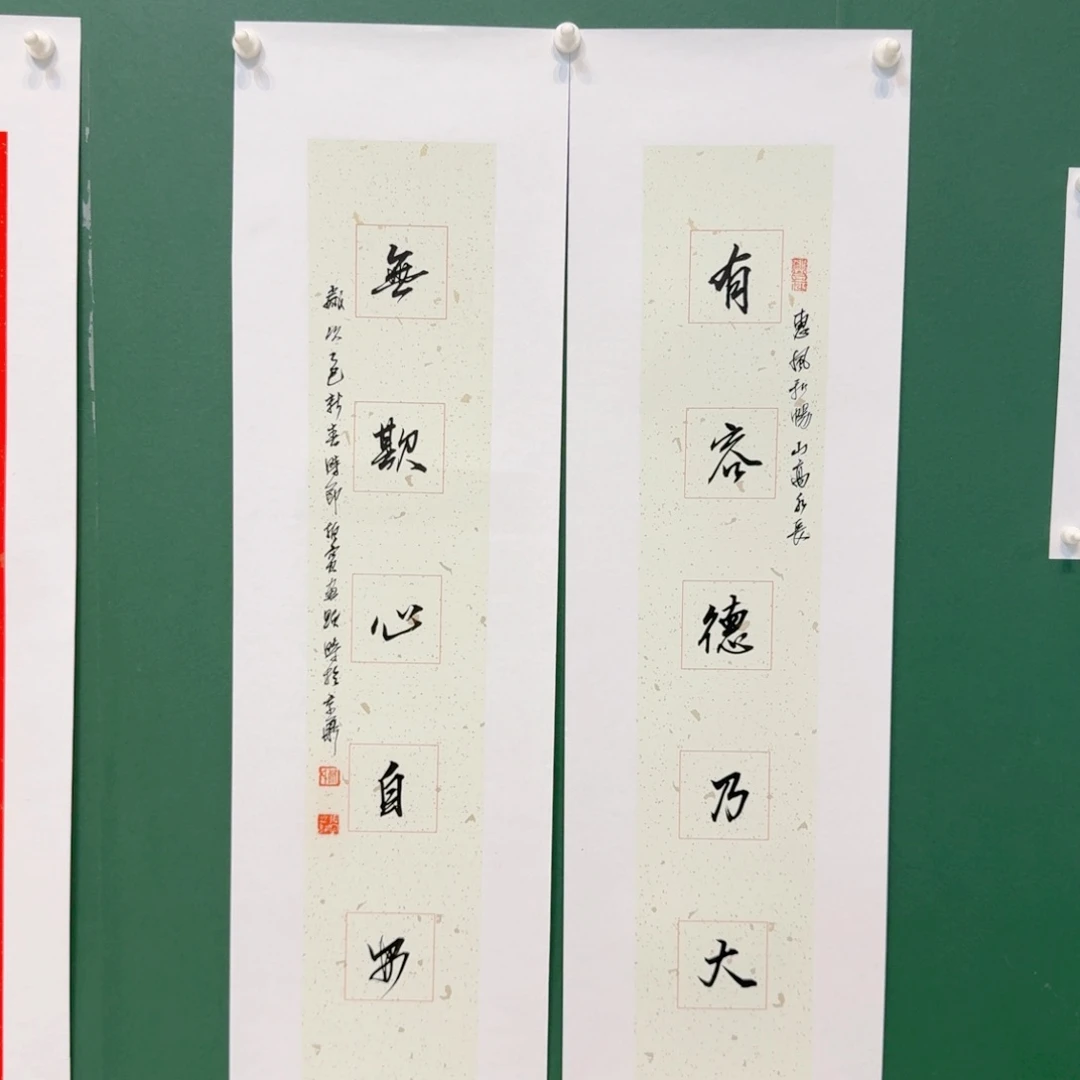 有容德乃大
惠風和暢山高水長
無欺心自安
歲次乙巳新喜時節 時於京華